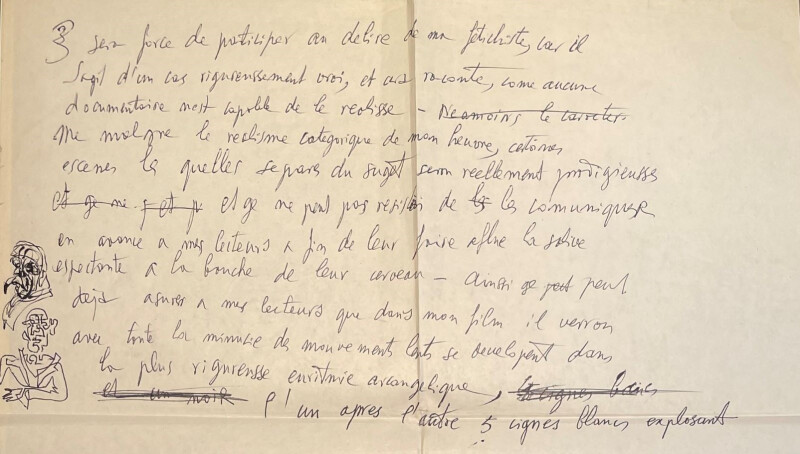 3) sera force de participer au delire de ma fetichiste, car il
sagit d'un cas rigureussement vrai, et ausi raconte, come aucune
documentaire nest capable de le realisse – Neamoins le caracter
Me malgre le realisme categorique de mon heuvre, certènes
escenes la quelles separes du suget seron reellement prodigieusses
et ge ne et ge ne peut pas resister de les comuniquer
en avance a mes lecteurs a fin de leur faire aflue la salive
espectante a la bouche de leur cerveau – Aunsi ge peut
dejà asures a mes lecteurs que dans mon film il verron
avec toute la minusie de mouvements lents se developent dans
la plus rigureusse euritmie arcangelique, cignes blancs
et un noir l'un apres l'autre 5 cignes blancs explosant